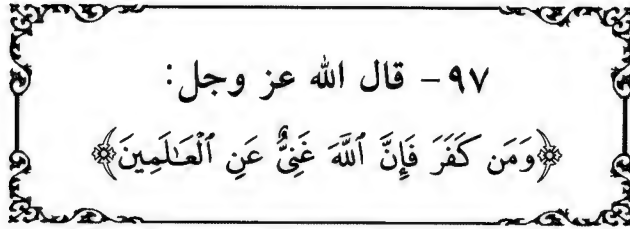 ٩٧- قال الله عز وجل:
﴿وَمَن كَفَرَ فَإِنَّ ٱللَّهَ غَنِيٌّ عَنِ ٱلْعَـٰلَمِينَ﴾